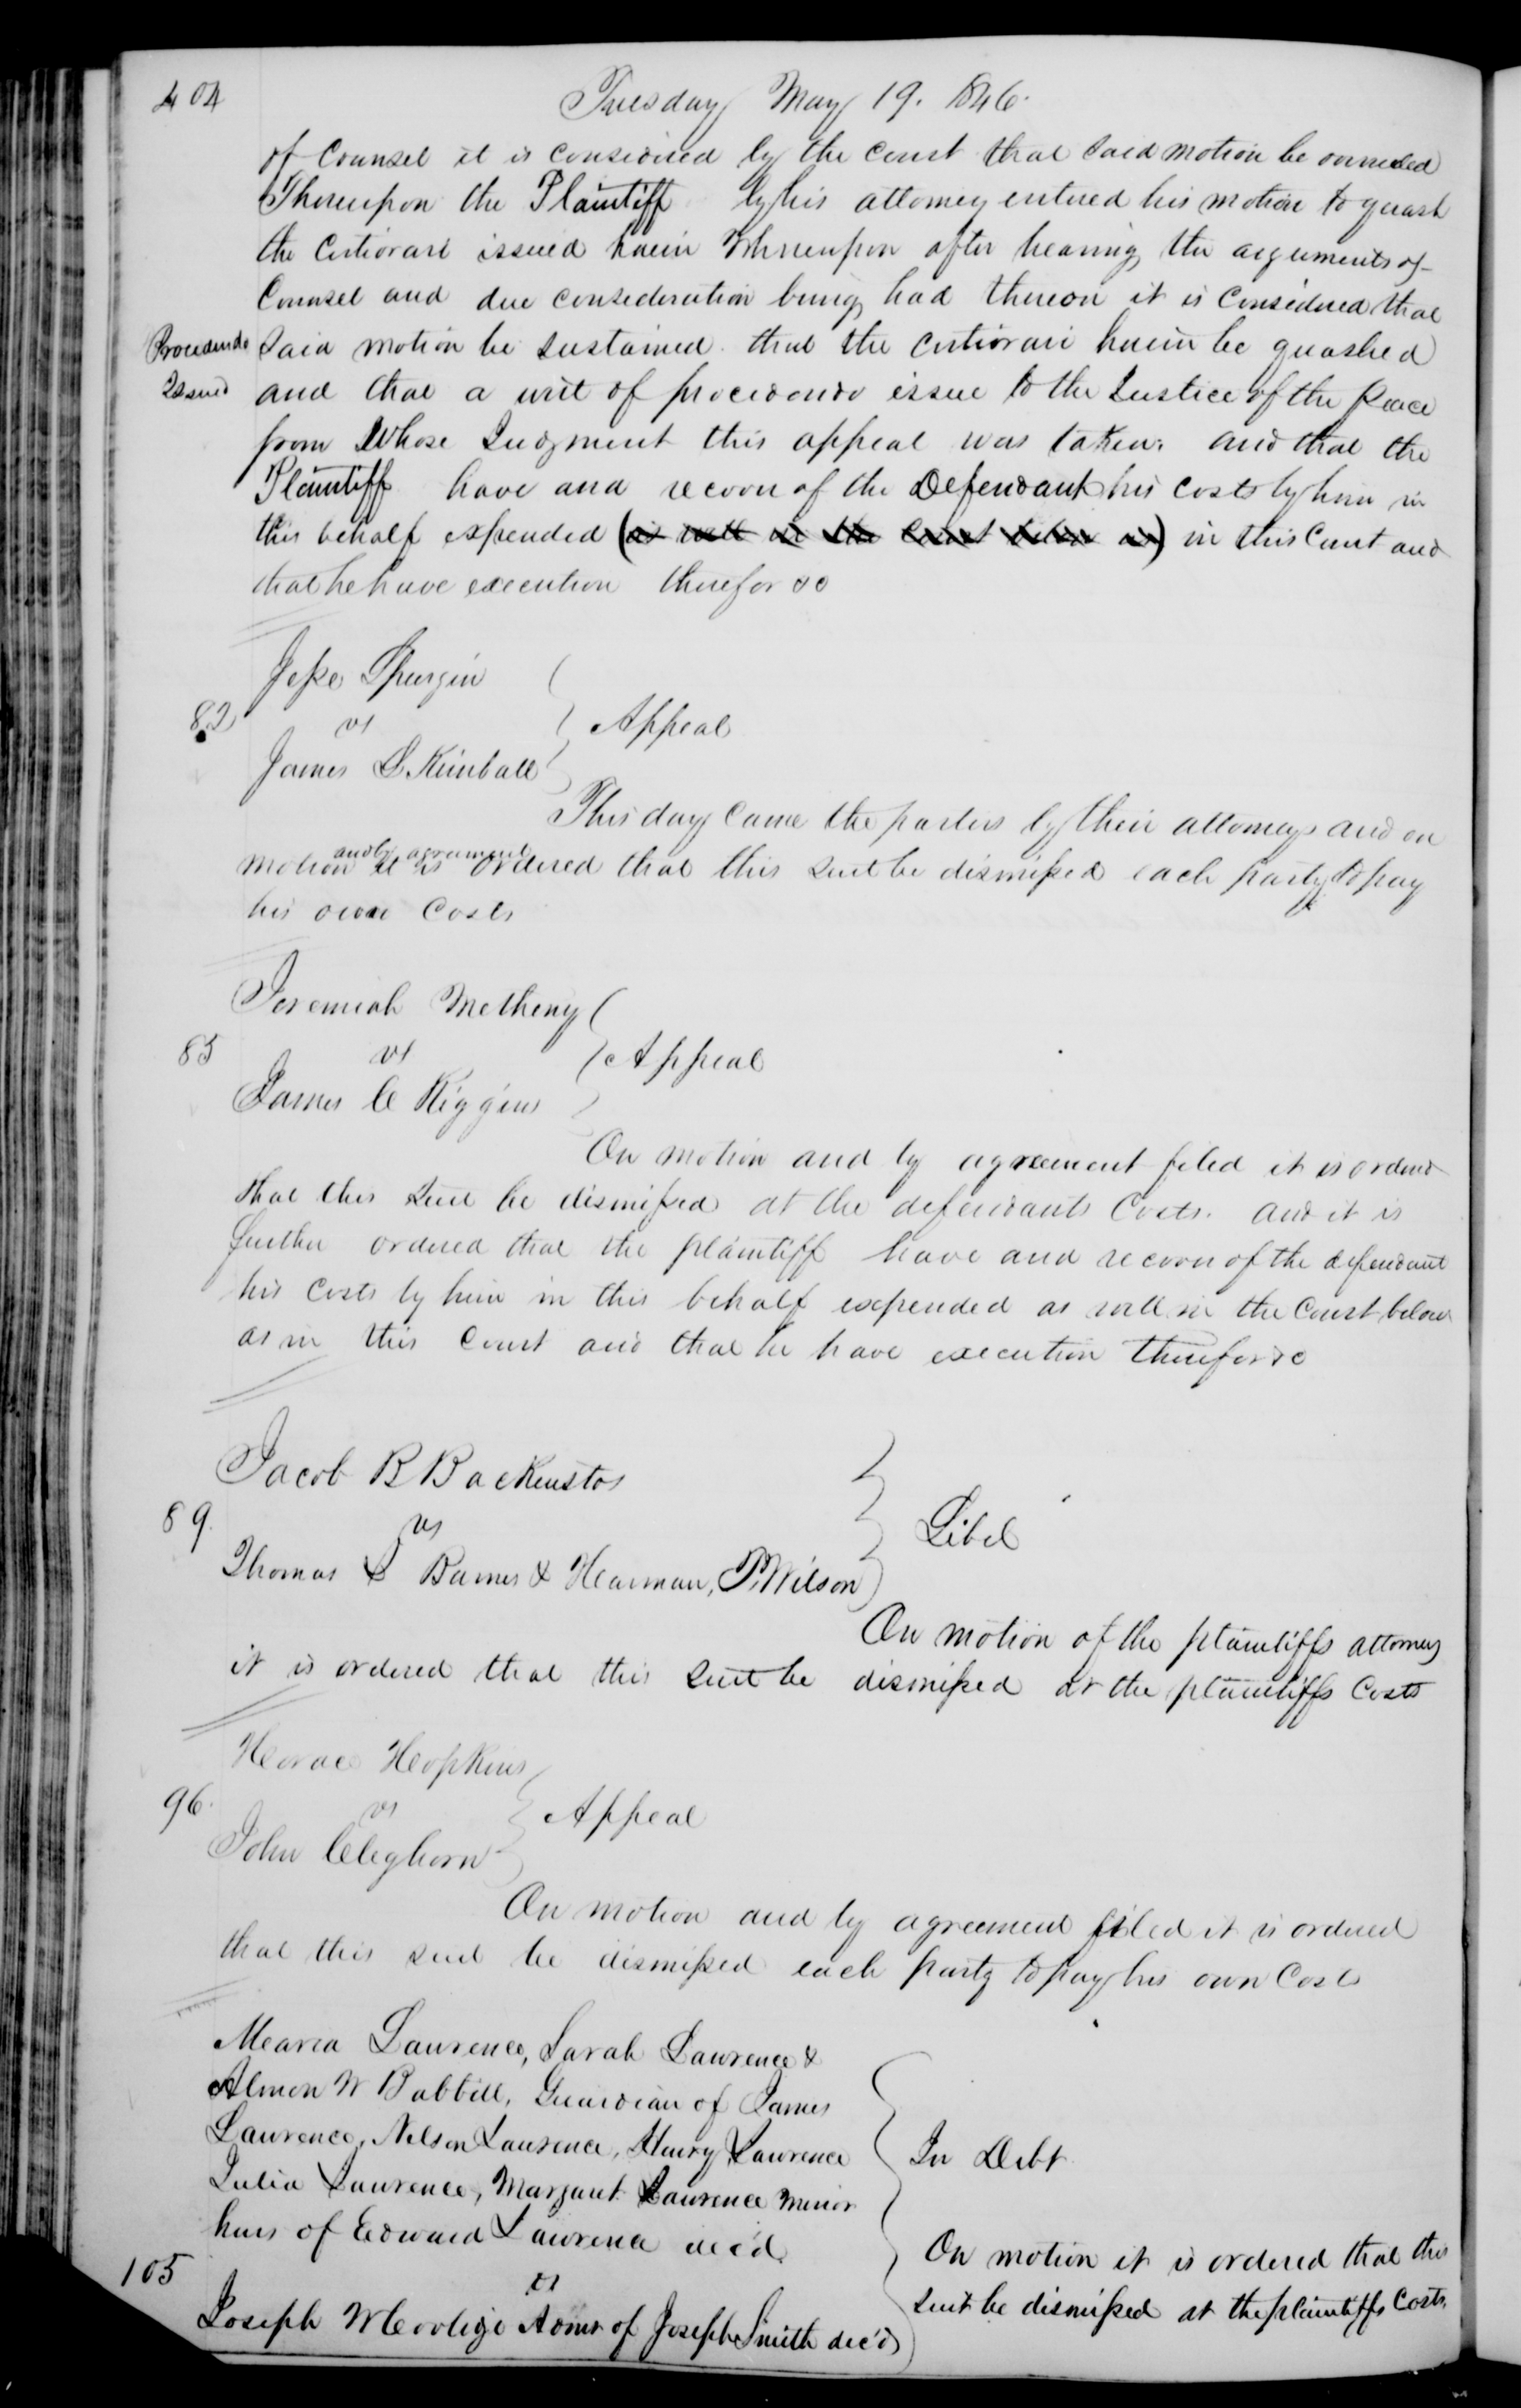 404
Tuesday May 19. 1846.
of Counsel it is considered by the court that said motion be overruled
Thereupon the Plaintiff by his attorney entered his motion to quash
the Certiorari issued herein Whereupon after hearing the arguments of
Counsel and due consideration being had thereon it is Considered that
Procedendo Issued
said motion be sustained. that the certiorari herein be quashed
and that a writ of procedendo issue to the Justice of the Peace
from Whose Judgment this appeal was taken. and that the
Plaintiff have and recover of the Defendant his costs by him in
this behalf expended (as well in the Court below as) in this Court and
that he have execution therefor &c
Jesse Spurgin
82
vs
Appeal
James L. Kimball
This day Came the parties by their attorneys and on
motion and by agreement it is ordered that this suit be dismissed each party to pay
his own Costs
Jeremiah Metheny
85
vs
Appeal
James C Riggins
On motion and by agreement filed it is ordered
that this suit be dismissed at the defendants Costs. and it is
further ordered that the plaintiff have and recover of the defendant
his costs by him in this behalf expended as well in the Court below
as in this Court and that he have execution therefor &c
Jacob B Backenstos
89.
vs
Libel
Thomas L Barnes & Hearman, T. Wilson
On motion of the plaintiffs attorney
it is ordered that this suit be dismissed at the plaintiffs Costs
Horace Hopkins
96.
vs
Appeal
John Cleghorn
On motion and by agreement filed it is ordered
that this suit be dismissed each party to pay his own Costs
Mearia Laurence, Sarah Lawrence &
Almon W Babbitt, Guardian of James
Lawrence, Nelson Laurence, Henry Lawrence
In Debt
Julia Lawrence, Margaret Lawrence minor
heirs of Edward Lawrence dec'd.
On motion it is ordered that this
105
vs
suit be dismissed at the plaintiffs Costs.
Joseph W Coolige Admr of Joseph Smith dec'd